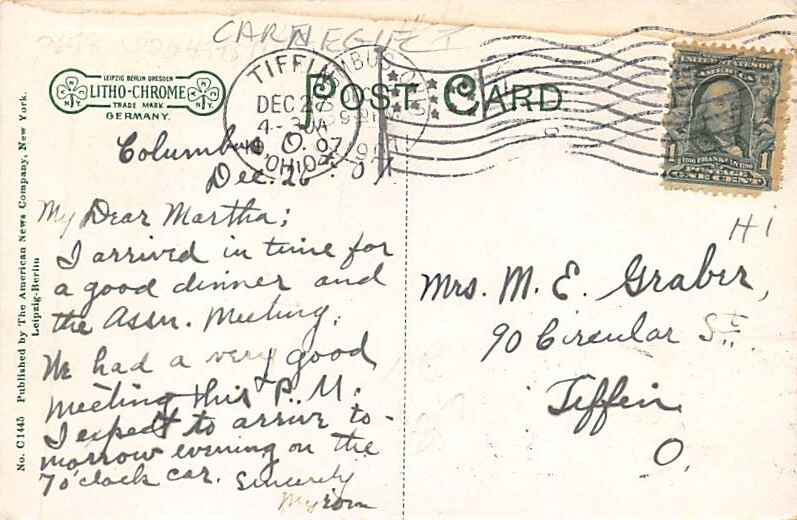 CARNEGIE I
POST CARD
LEIPZIG BERLIN DRESDEN
LITHO-CHROME
TRADE MARK
GERMANY.
N.Y. N.Y.
TIFFIN
DEC 27
4-30A
07
OHIO
UNITED STATES OF
AMERICA
1 FRANKLIN 1
POSTAGE
ONE CENT
Columbus O.
Dec. 26
My Dear Martha;
I arrived in time for
a good dinner and
the Assn. Meeting.
We had a very good
meeting this P.M.
I expect to arrive to-
morrow evening on the
7 o'clock car. Sincerely
Myron
H1
Mrs. M. E. Graber,
90 Circular St.
Tiffin
O.
No. C1445 Published by The American News Company, New York.
Leipzig-Berlin